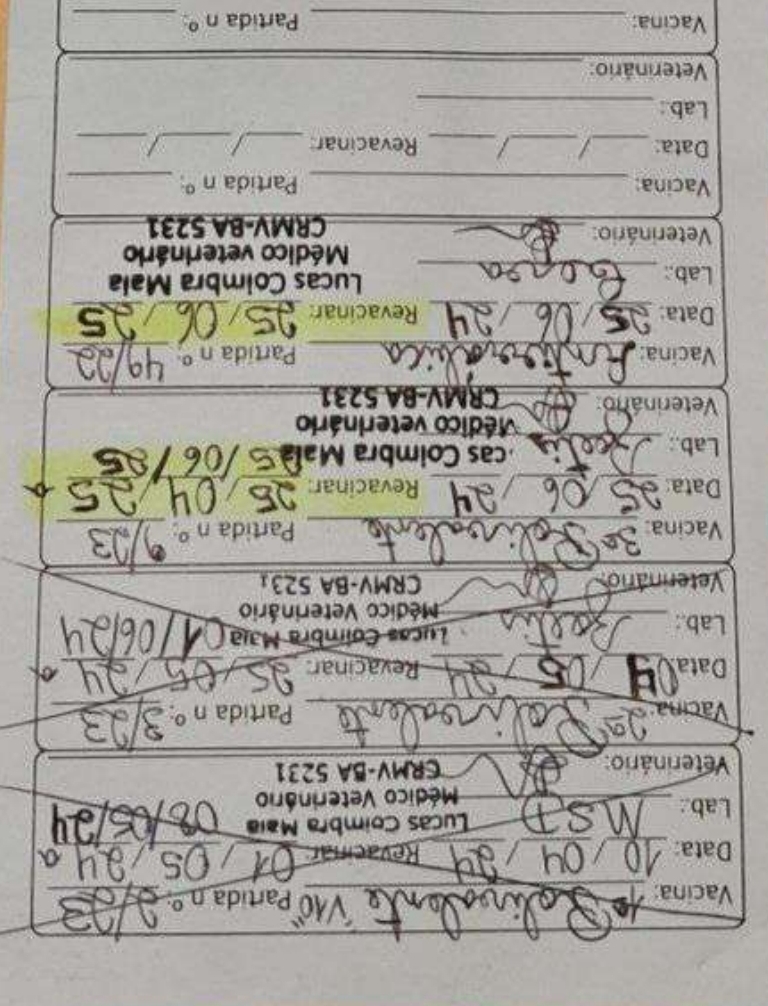 Vacina: 1ª Polivalente "V10" Partida n.º: 2/23
Data: 10/04/24 Revacinar: 01/05/24 a
Lab.: MSD Lucas Coimbra Maia 08/05/24
Médico Veterinário
Veterinário: CRMV-BA 5231
Vacina: 2ª Polivalente Partida n.º: 3/23
Data: 04/05/24 Revacinar: 25/05/24 a
Lab.: Zoetis Lucas Coimbra Maia 01/06/24
Médico Veterinário
Veterinário: CRMV-BA 5231
Vacina: 3ª Polivalente Partida n.º: 9/23
Data: 25/06/24 Revacinar: 25/04/25 a
Lab.: Zoetis cas Coimbra Maia 25/06/25
Médico veterinário
Veterinário: CRMV-BA 5231
Vacina: Antirrábica Partida n.º: 49/22
Data: 25/06/24 Revacinar: 25/06/25
Lab.: Lucas Coimbra Maia
Médico veterinário
Veterinário: CRMV-BA 5231
Vacina: Partida n.º:
Data: / / Revacinar: / /
Lab.:
Veterinário:
Vacina: Partida n.º: